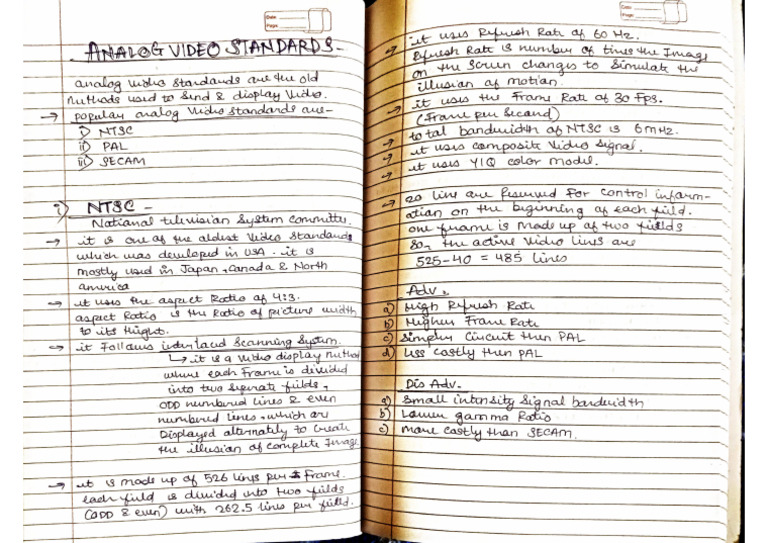 Date:
Page:
ANALOG VIDEO STANDARDS -
analog video standards are the old
methods used to send & display video.
→ popular analog video standards are-
i) NTSC
ii) PAL
iii) SECAM
i) NTSC -
National television system committee.
→ it is one of the oldest video standards
which was developed in USA. it is
mostly used in Japan, Canada & North
america
→ it uses the aspect Ratio of 4:3.
aspect Ratio is the Ratio of picture width
to its height.
→ it follows interlaced scanning system.
↳ it is a video display method
where each frame is divided
into two seperate fields,
ODD numbered lines & even
numbered lines, which are
Displayed alternately to create
the illusion of complete Image.
→ it is made up of 526 lines per frame.
each field is divided into two fields
(ODD & even) with 262.5 lines per field.
Date:
Page:
→ it uses Refresh Rate of 60 Hz.
Refresh Rate is number of times the Image
on the screen changes to simulate the
illusion of motion.
→ it uses the frame Rate of 30 fps.
(frame per second)
→ total bandwidth of NTSC is 6 mHz.
→ it uses composite video signal.
→ it uses YIQ color model.
→ 20 line are reserved for control inform-
ation on the beginning of each field.
one frame is made up of two fields
so, the active video lines are
525-40 = 485 lines
Adv.
a) High Refresh Rate
b) Higher frame Rate
c) Simpler circuit then PAL
d) less costly then PAL
Dis Adv.
a) Small intensity signal bandwidth
b) Lower gamma Ratio
c) more costly than SECAM.